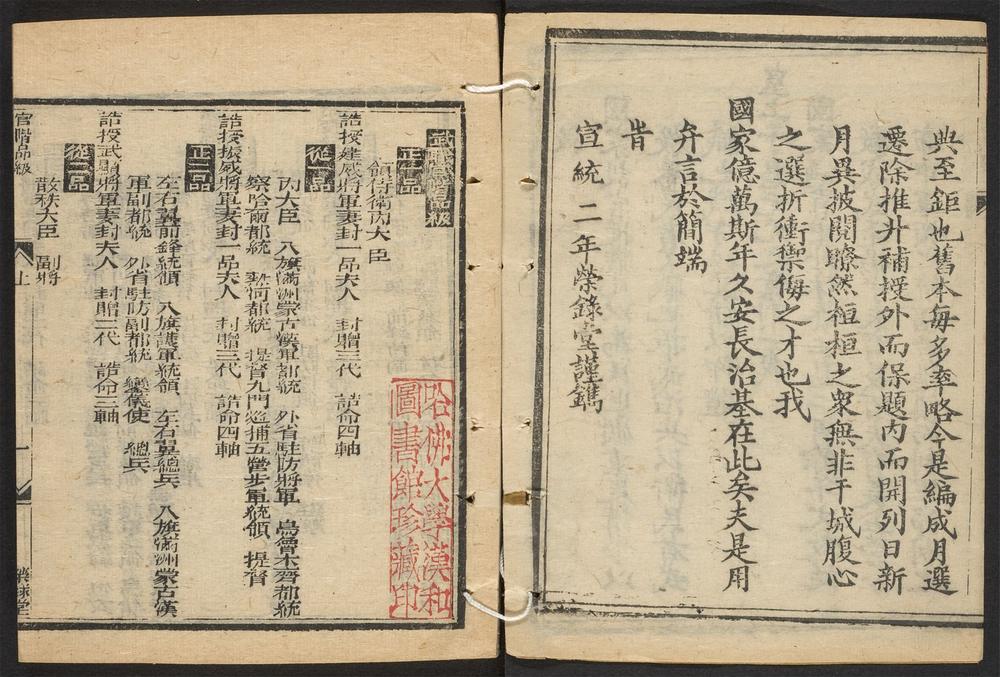 典至鉅也舊本每多率略今是編成月選
遷除推升補授外而保題內而開列日新
月異披閱瞭然桓桓之衆無非干城腹心
之選折衝禦侮之才也我
國家億萬斯年久安長治基在此矣夫是用
弁言於簡端
旹
宣統二年榮錄堂謹鐫
武職官階品級
正一品
領侍衛內大臣
誥授建威將軍妻封一品夫人 封贈三代 誥命四軸
從一品
內大臣 八旗滿洲蒙古漢軍都統 外省駐防將軍 烏魯木齊都統
察哈爾都統 熱河都統 提督九門巡捕五營步軍統領 提督
誥授振威將軍妻封一品夫人 封贈三代 誥命四軸
正二品
左右翼前鋒統領 八旗護軍統領 左右翼總兵 八旗滿洲蒙古漢
軍副都統 外省駐防副都統 鑾儀使 總兵
誥授武顯將軍妻封夫人 封贈二代 誥命三軸
從二品
散秩大臣 副將
官階品級 上 一 榮錄堂
哈佛大學漢和
圖書館珍藏印